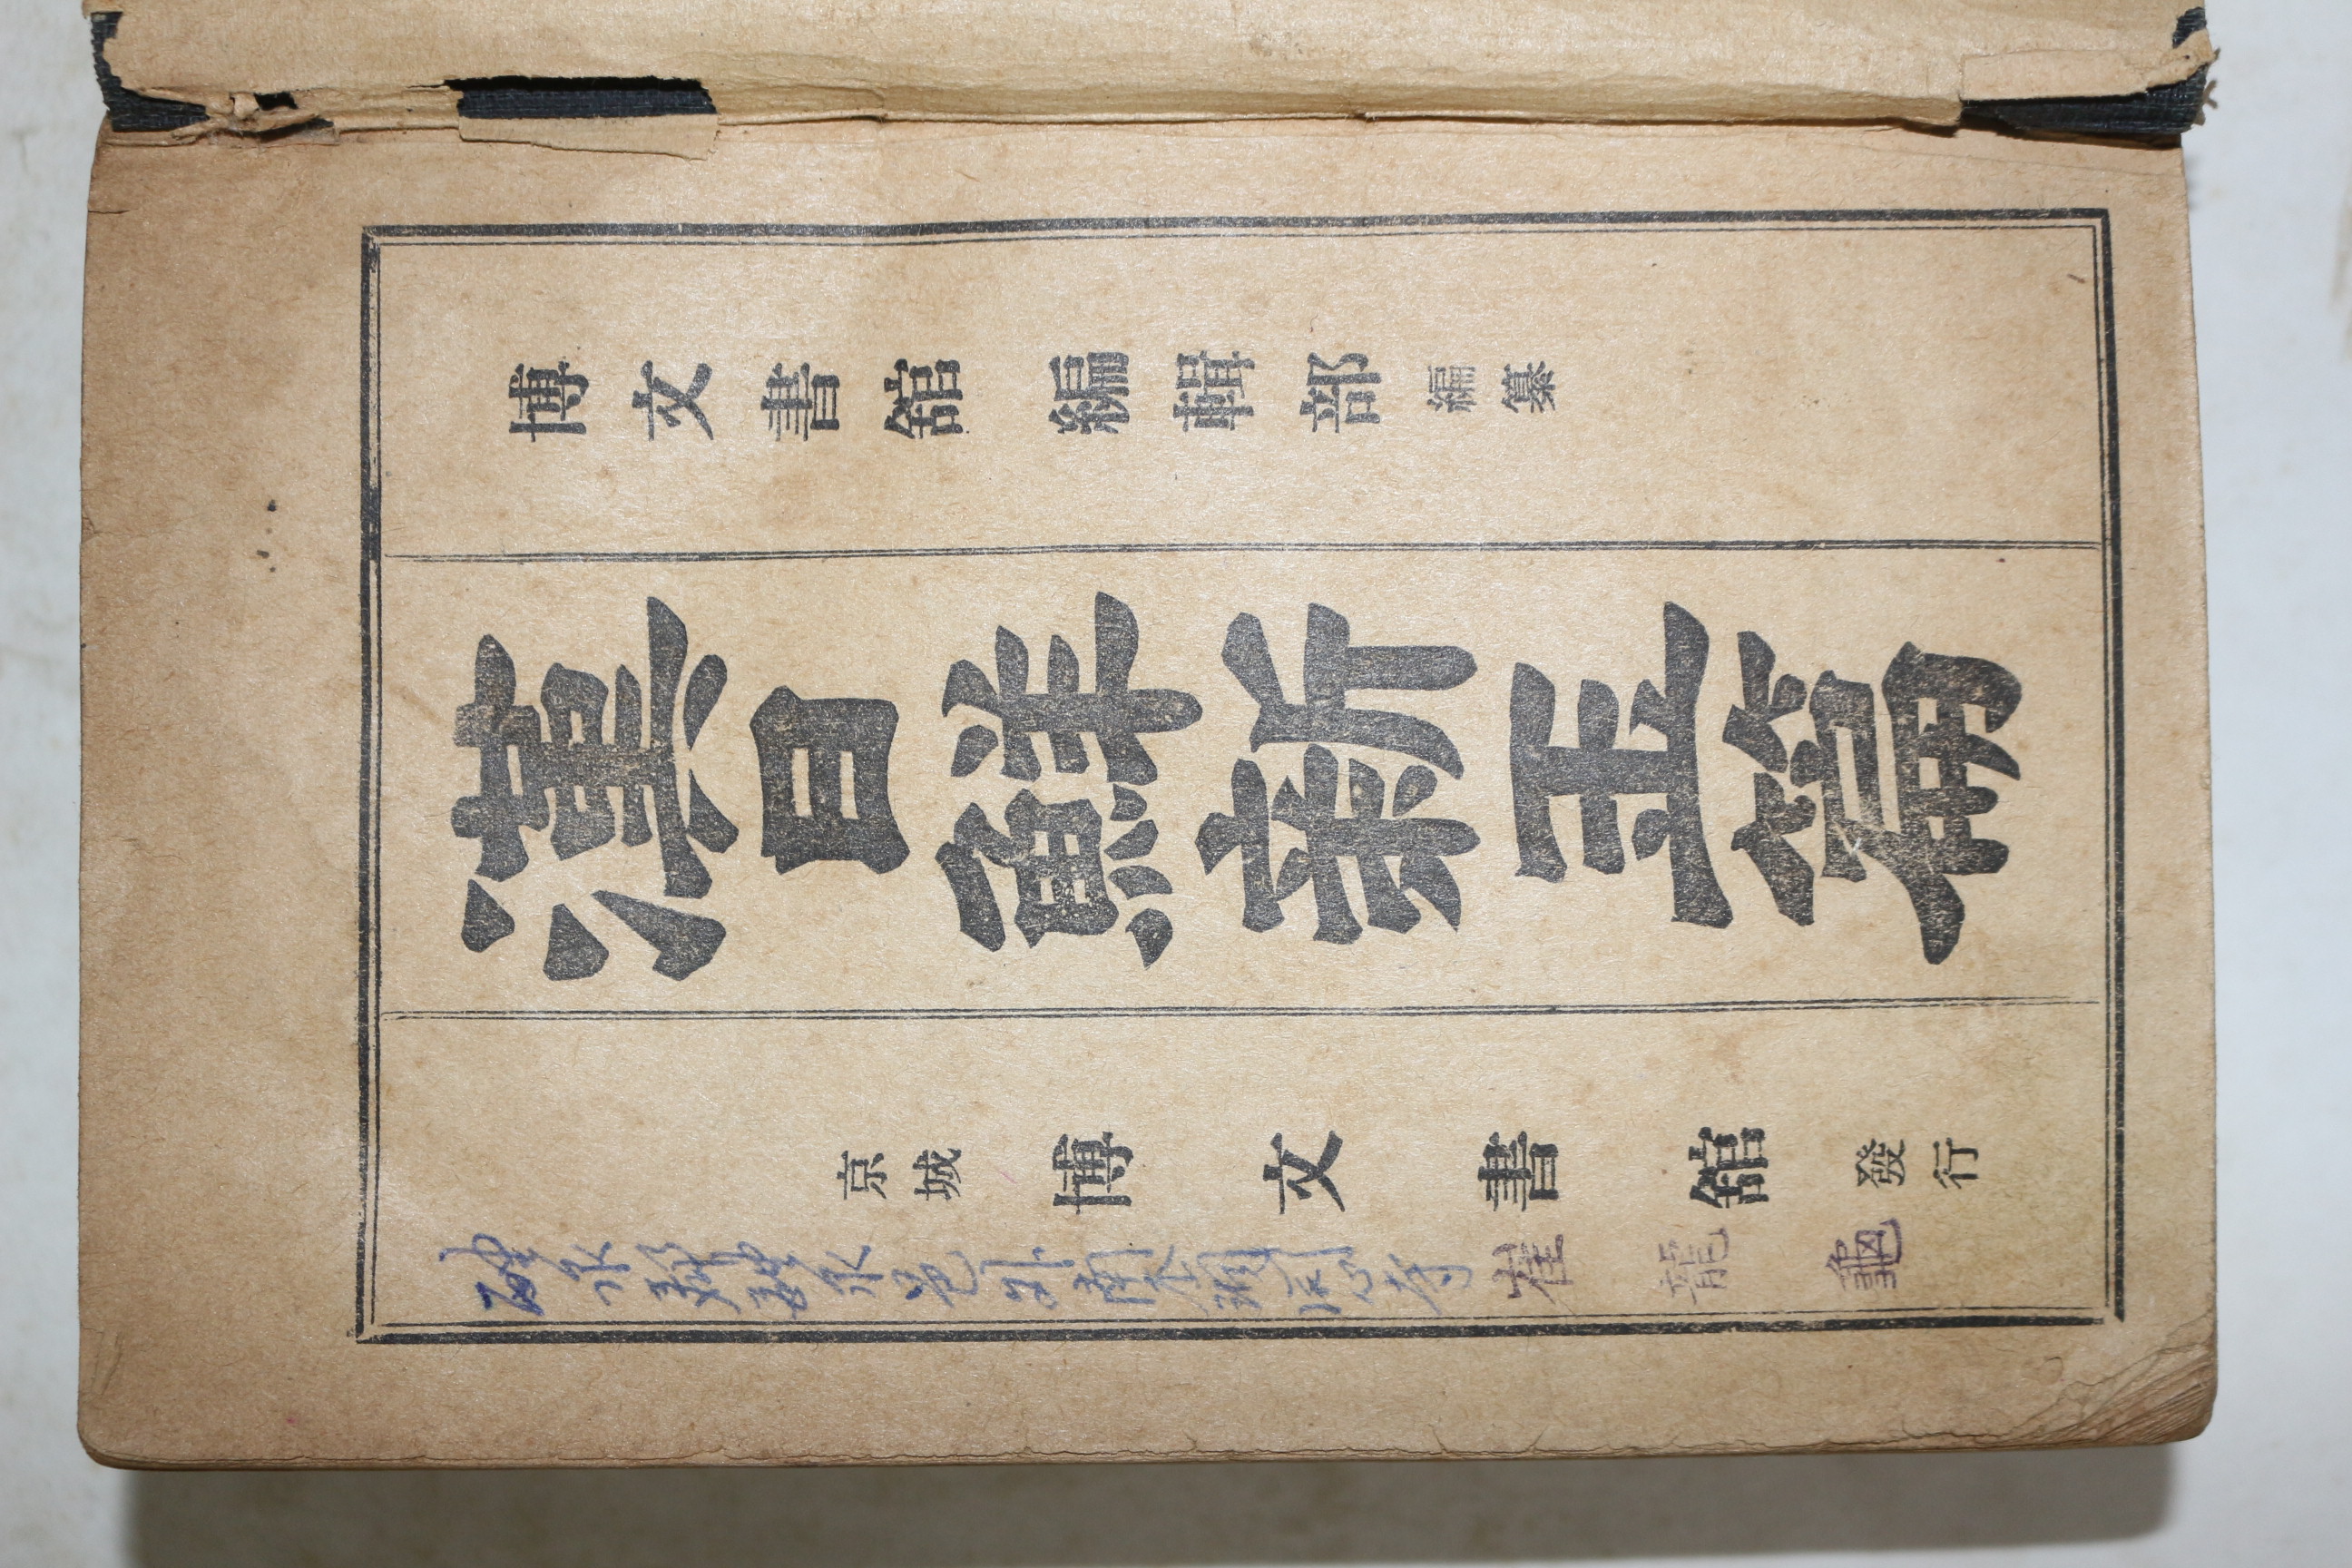 博文書館 編輯部 編纂
漢日鮮新玉篇
京城 博文書館 發行
崔龍龜